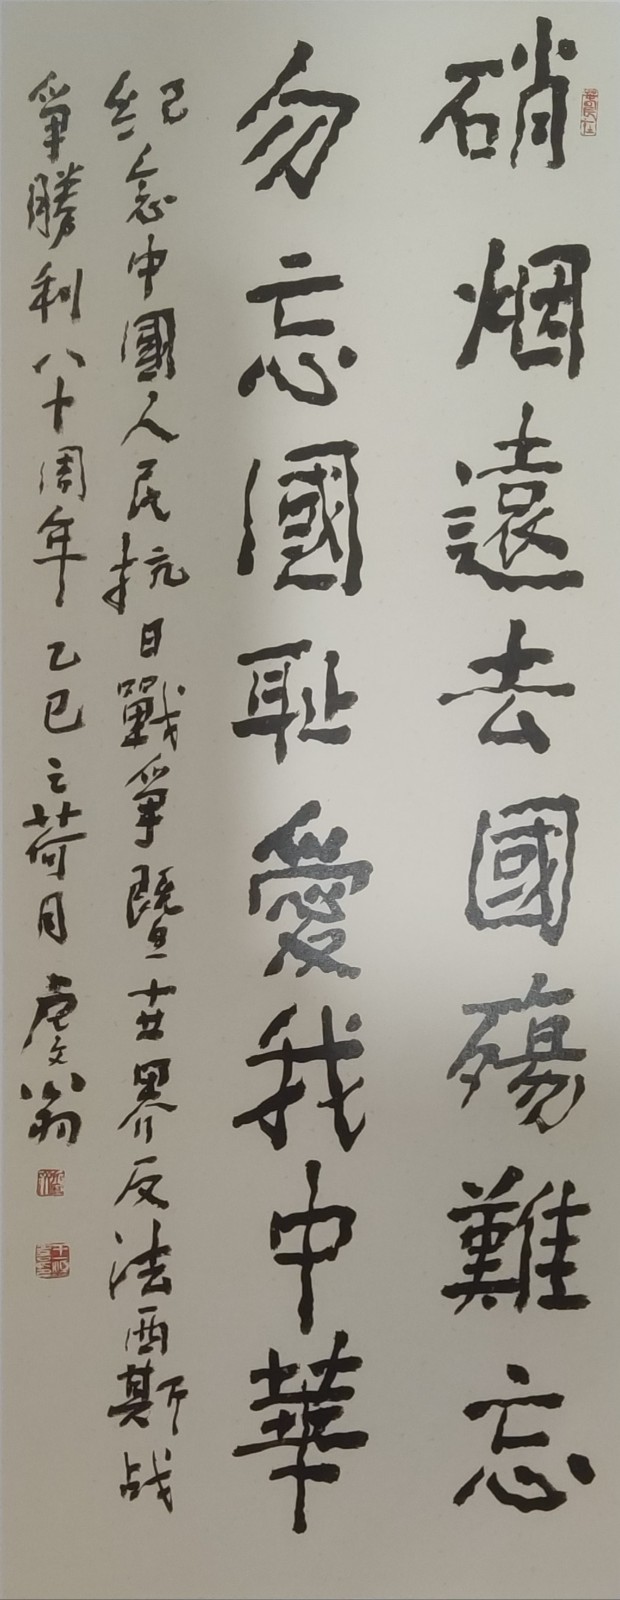 硝烟遠去國殤難忘
勿忘國恥愛我中華
紀念中國人民抗日戰爭暨世界反法西斯战
爭勝利八十周年乙巳之荷月處文翁